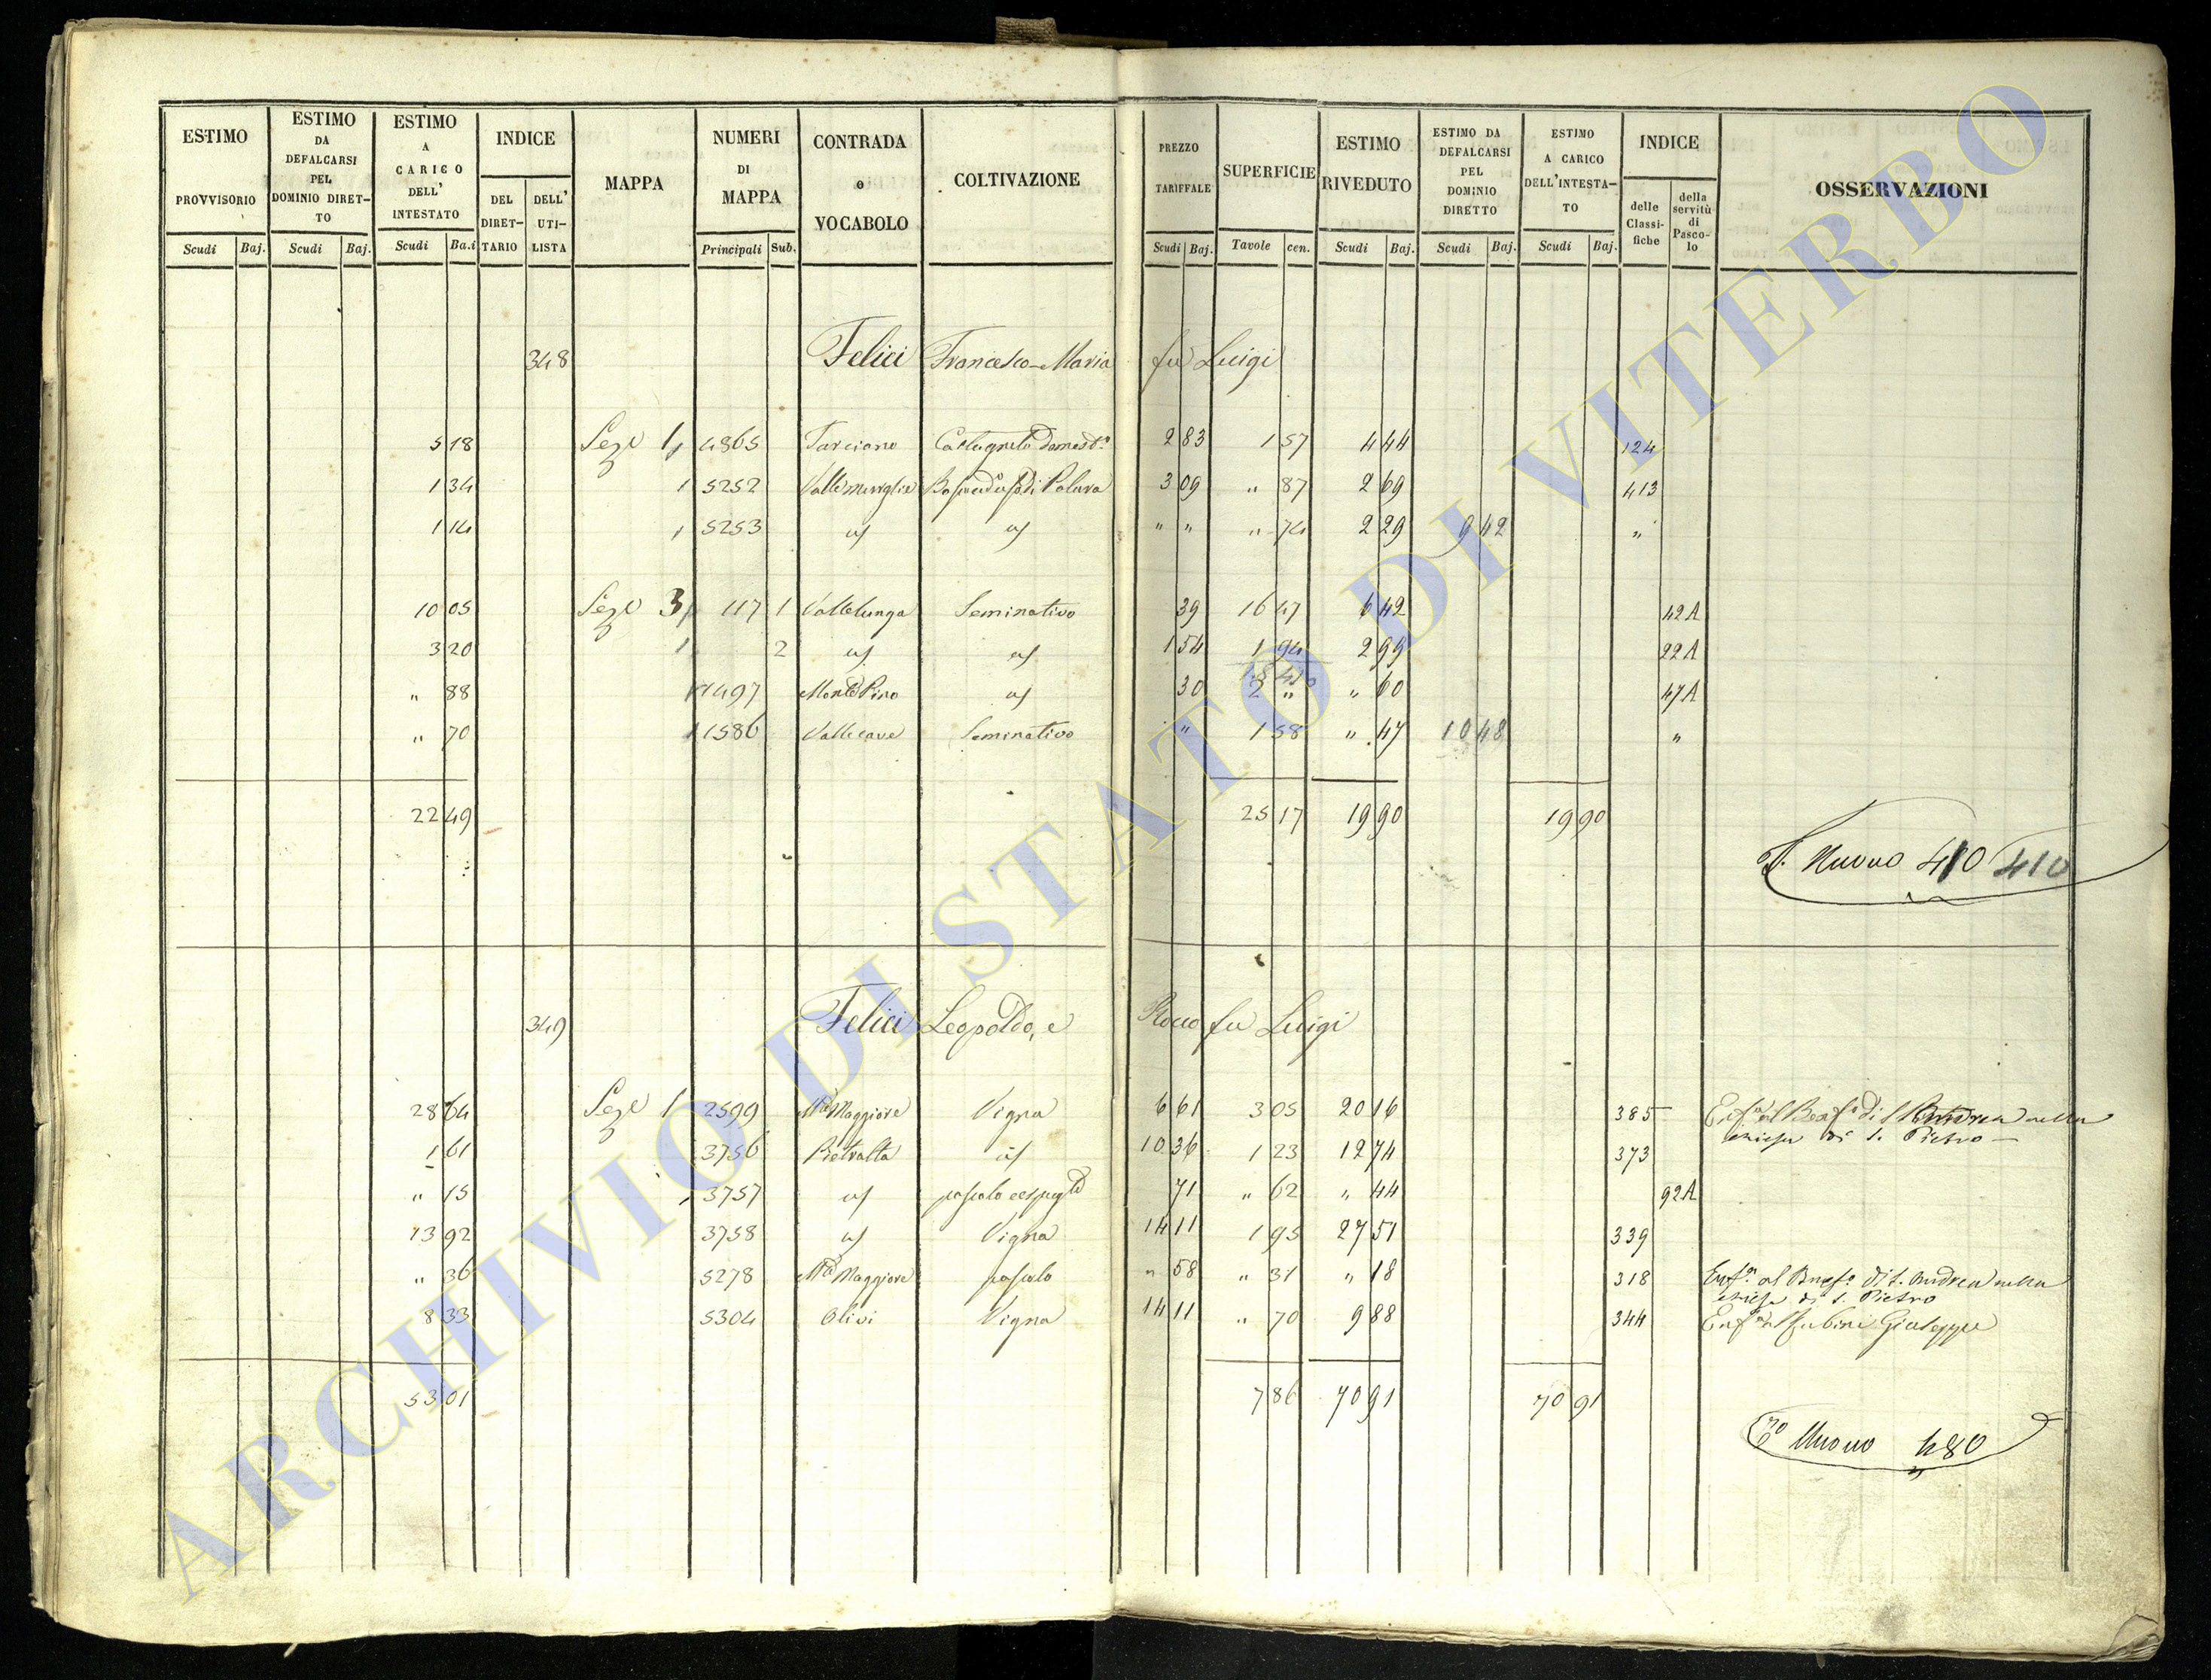 ESTIMO PROVVISORIO Scudi Baj. ESTIMO DA DEFALCARSI PEL DOMINIO DIRETTO Scudi Baj. ESTIMO A CARICO DELL' INTESTATO Scudi Ba.i INDICE DEL DIRETTARIO DELL' UTILISTA MAPPA NUMERI DI MAPPA Principali Sub. CONTRADA e VOCABOLO COLTIVAZIONE PREZZO TARIFFALE Scudi Baj. SUPERFICIE Tavole cen. ESTIMO RIVEDUTO Scudi Baj. ESTIMO DA DEFALCARSI PEL DOMINIO DIRETTO Scudi Baj. ESTIMO A CARICO DELL'INTESTATO Scudi Baj. INDICE delle Classifiche della servitù di Pascolo OSSERVAZIONI
348 Felici Francesco-Maria fu Luigi
5 18 Sez.e 1 4865 Tarciano 2 83 1 57 4 44 124
1 34 1 5252 3 09 " 87 2 69 413
1 14 1 5253 " " " 74 2 29 9 42 "
10 05 Sez.e 3 117 1 Vallelunga Seminativo 39 16 47 6 42 42A
3 20 1 2 1 54 1 94 2 99 22A
" 88 1497 Monte Pino 30 2 " " 60 47A
" 70 1586 Vallecave Seminativo " 1 58 " 47 10 48 "
22 49 25 17 19 90 19 90
Nuovo 410 410
349 Felici Leopoldo, e Rocco fu Luigi
28 64 Sez.e 1 2599 M.te Maggiore Vigna 6 61 3 05 20 16 385
1 61 3756 Pietralta 10 36 1 23 12 74 373
chiesa di S. Pietro
" 15 3757 pascolo 71 " 62 " 44 92A
13 92 3758 Vigna 14 11 1 95 27 51 339
" 36 5278 M.te Maggiore pascolo " 58 " 31 " 18 318 Enf.a al Benef.o di S. Andrea nella
chiesa di S. Pietro
8 33 5304 Olivi Vigna 14 11 " 70 9 88 344 Giuseppe
53 01 7 86 70 91 70 91
Nuovo 480
ARCHIVIO DI STATO DI VITERBO